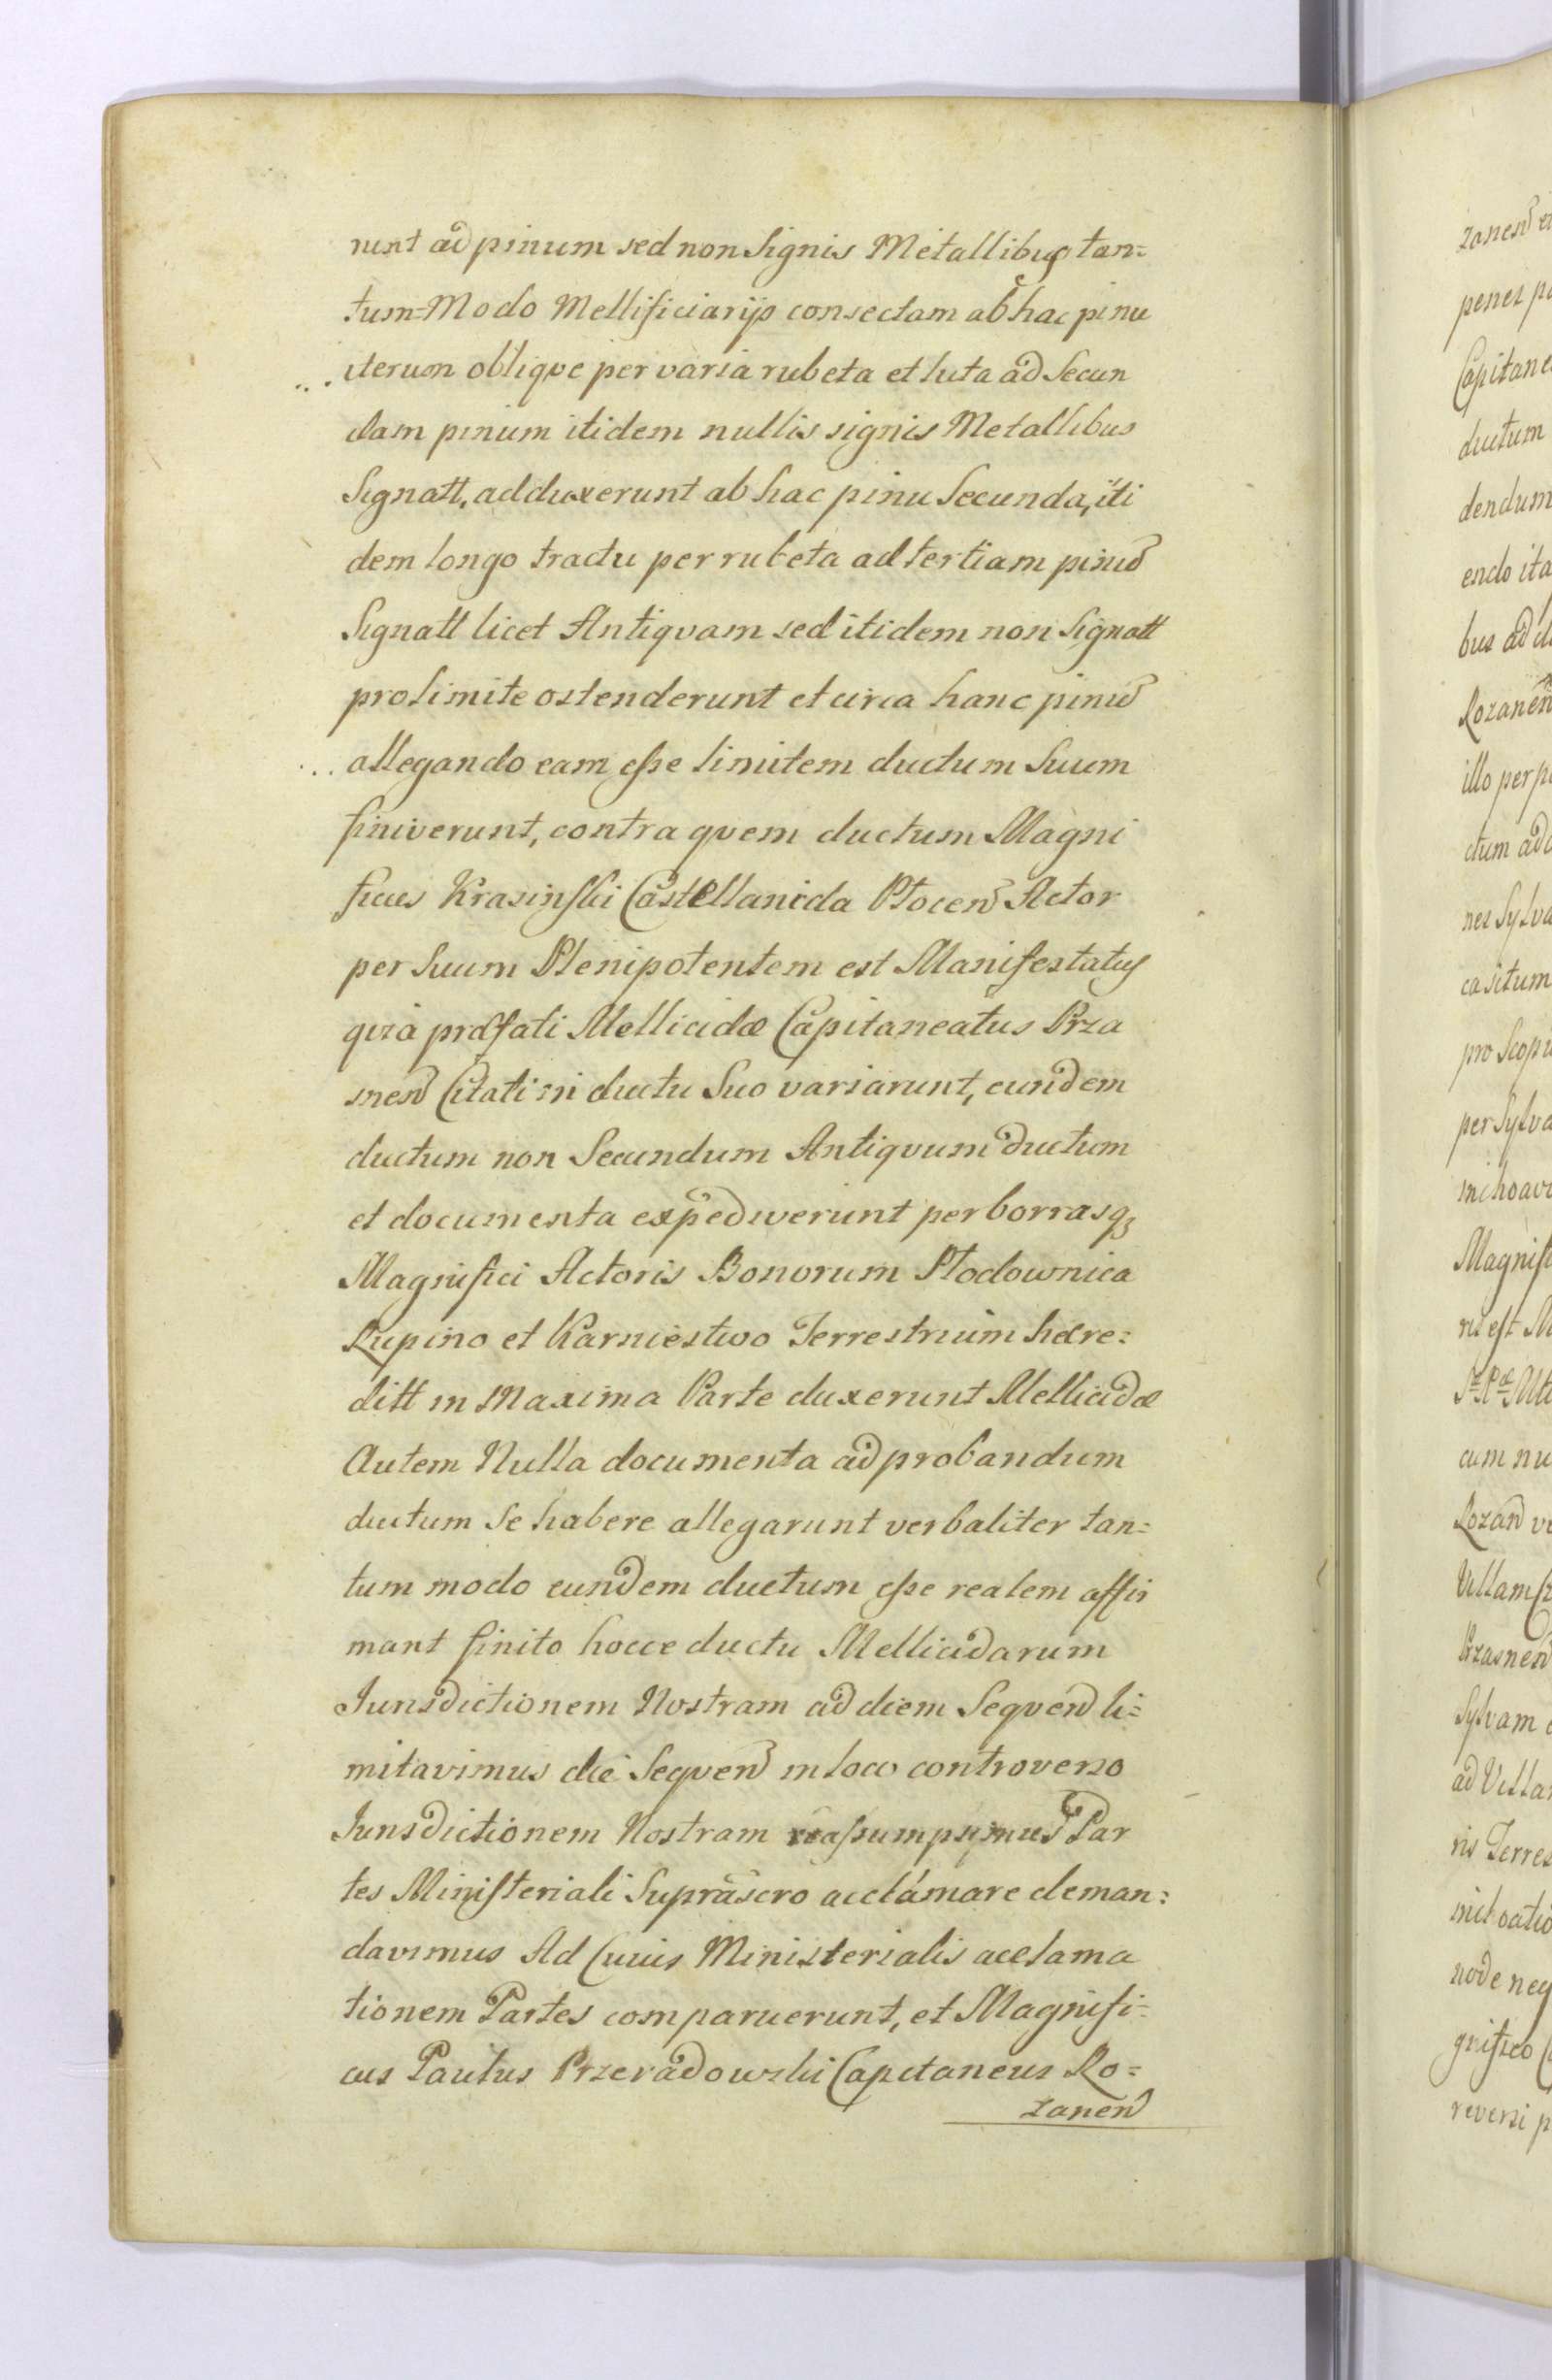 runt ad pinum sed non Signis Metallibus tan=
tum=Modo Mellificiarijs consectam ab hac pinu
iterum obliqve per varia rubeta et luta ad Secun
dam pinum itidem nullis signis Metallibus
Signatt, adduxerunt ab hac pinu Secunda, iti
dem longo tractu per rubeta ad tertiam pinũ
Signatt licet Antiqvam sed itidem non Signatt
pro limite ostenderunt et circa hanc pinũ
allegando eam esse limitem ductum Suum
finiverunt, contra qvem ductum Magni
ficus Krasinski Castellanida Płocen Actor
per Suum Plenipotentem est Manifestatus
qvia præfati Mellicidæ Capitaneatus Prza
snen Citati in ductu Suo variarunt, eundem
ductum non Secundum Antiqvum ductum
et documenta expediverunt per borrasq3
Magnifici Actoris Bonorum Płodownica
Lupino et Karniestwo Terrestrium hære=
ditt in Maxima Parte duxerunt Mellicidæ
Autem Nulla documenta ad probandum
ductum Se habere allegarunt verbaliter tan=
tum modo eundem ductum esse realem affir
mant finito hocce ductu Mellicidarum
Jurisdictionem Nostram ad diem Seqven li=
mitavimus die Seqven in loco controverso
Jurisdictionem Nostram reassumpsimus Par
tes Ministeriali Suprascro acclamare deman=
davimus Ad Cuius Ministerialis acclama
tionem Partes comparuerunt, et Magnifi=
cus Paulus Przeradowski Capitaneus Ro=
zanen
zanen
penes
Capitane
ductum
dendum
endo ita
bus ad
Rozanen
illo per
ctum ad
nes Sylva
casitum
pro Scopu
per Sylva
inchoav
Magnifi
ris est M
cum nu
Rozan
Villam
Przasnen
Sylvam
ad Villa
ris Terres
node neq
gnifico
reversi p